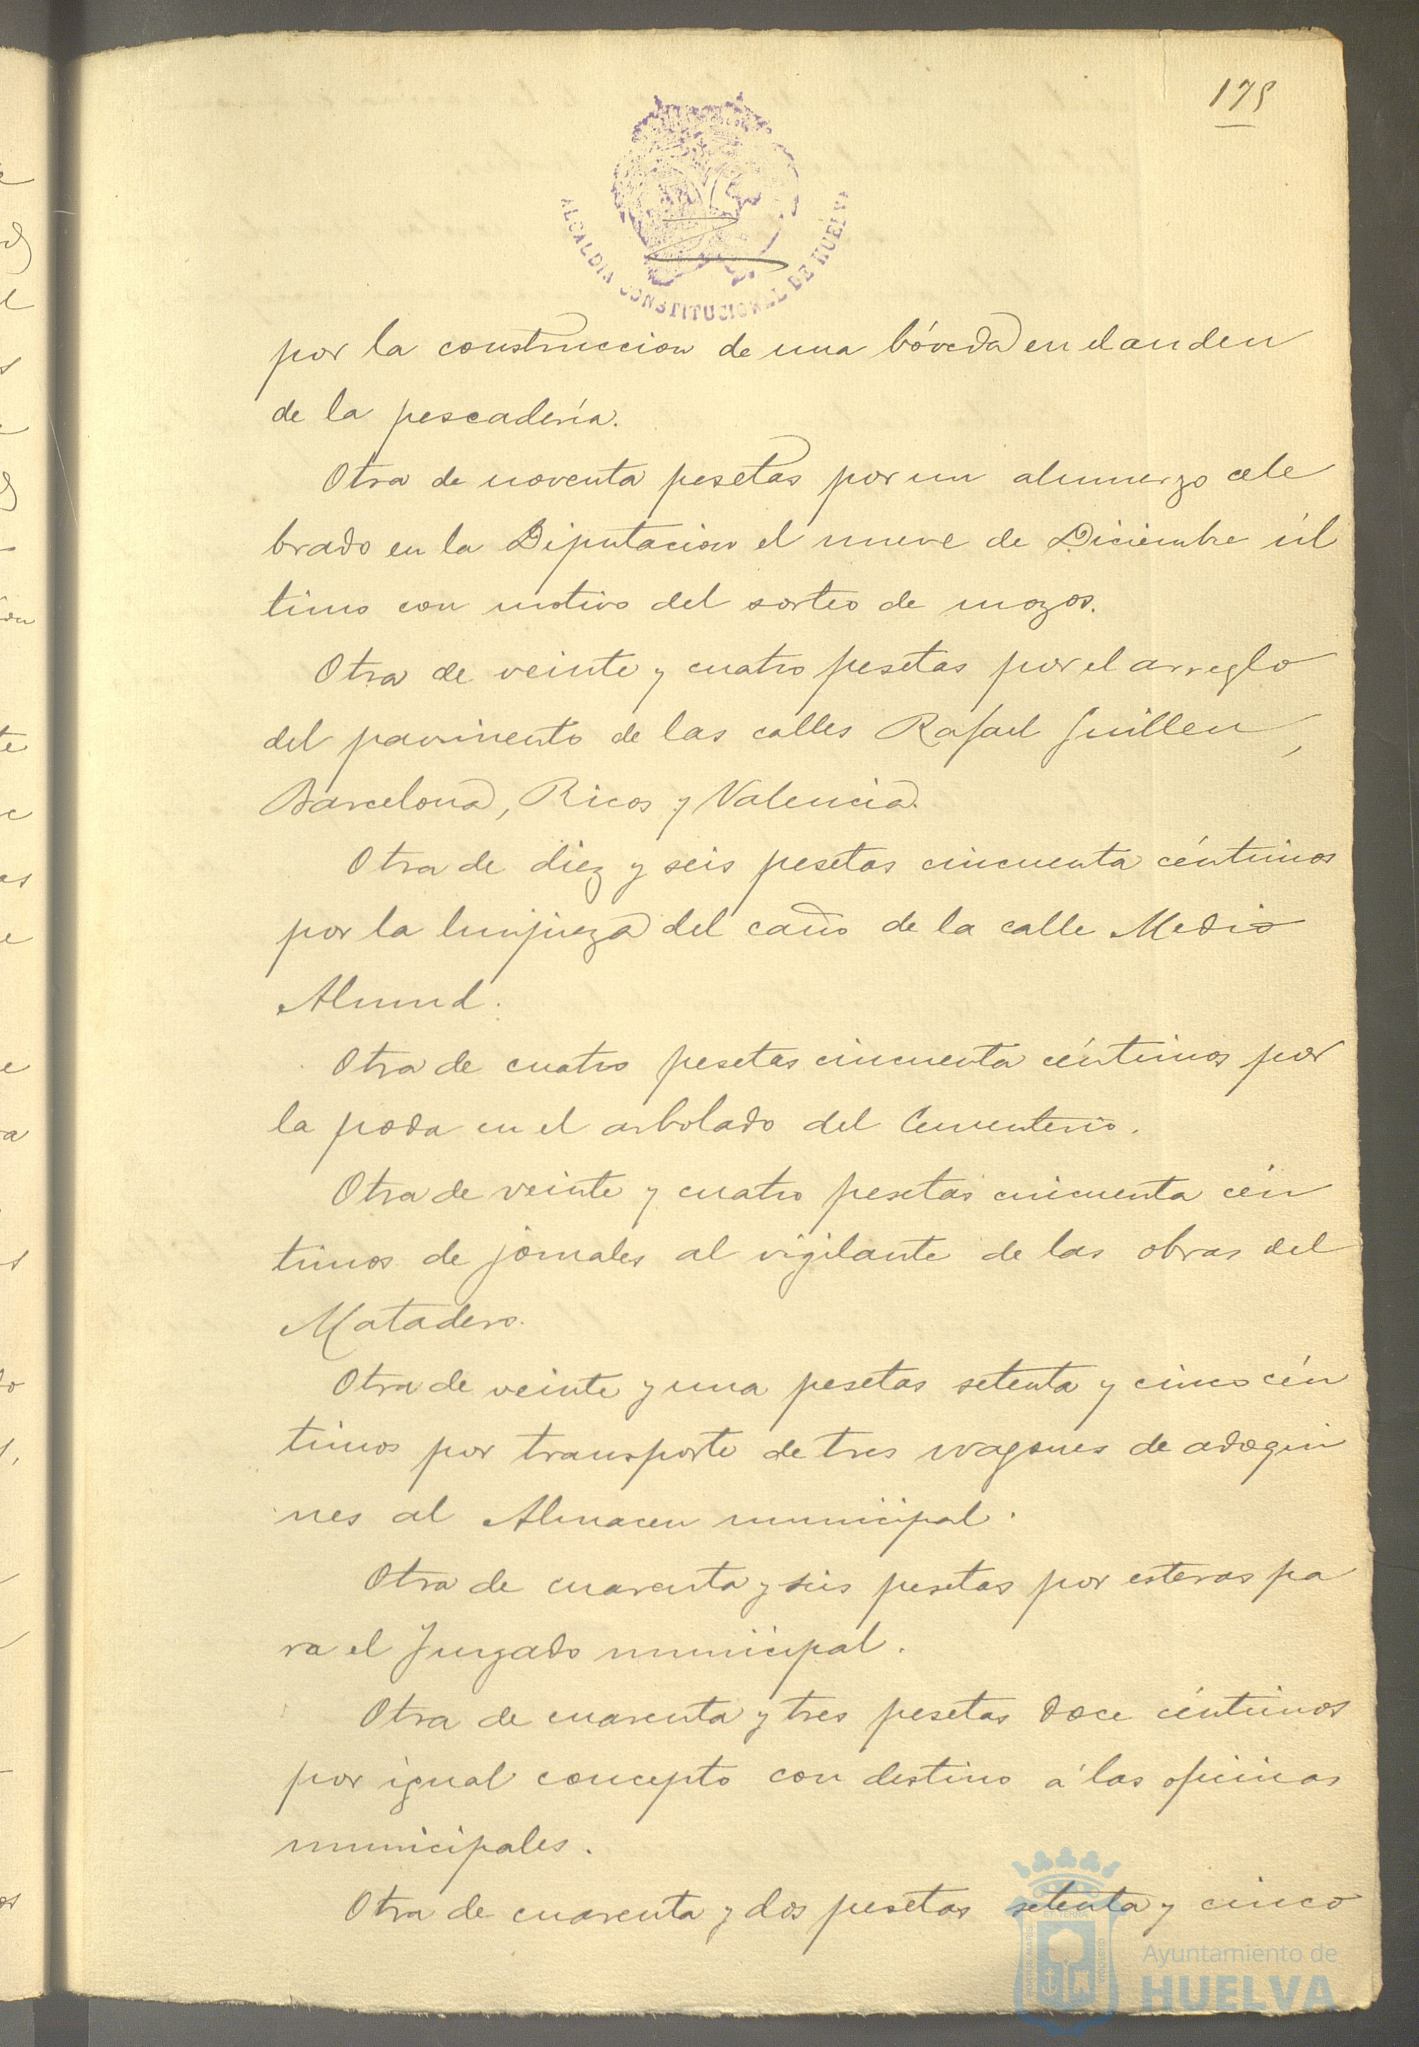 175
ALCALDIA CONSTITUCIONAL DE HUELVA
por la construccion de una bóveda en el anden
de la pescadería.
Otra de noventa pesetas por un almuerzo cele
brado en la Diputacion el nueve de Diciembre úl
timo con motivo del sorteo de mozos.
Otra de veinte y cuatro pesetas por el arreglo
del pavimento de las calles Rafael Guillen,
Barcelona, Ricos y Valencia.
Otra de diez y seis pesetas cincuenta céntimos
por la limpieza del caño de la calle Medio
Almud.
Otra de cuatro pesetas cincuenta céntimos por
la poda en el arbolado del Cementerio.
Otra de veinte y cuatro pesetas cincuenta cén
timos de jornales al vigilante de las obras del
Matadero.
Otra de veinte y una pesetas setenta y cinco cén
timos por transporte de tres wagones de adoqui
nes al Almacen municipal.
Otra de cuarenta y seis pesetas por esteras pa
ra el Juzgado municipal.
Otra de cuarenta y tres pesetas doce céntimos
por igual concepto con destino á las oficinas
municipales.
Otra de cuarenta y dos pesetas setenta y cinco
Ayuntamiento de
HUELVA